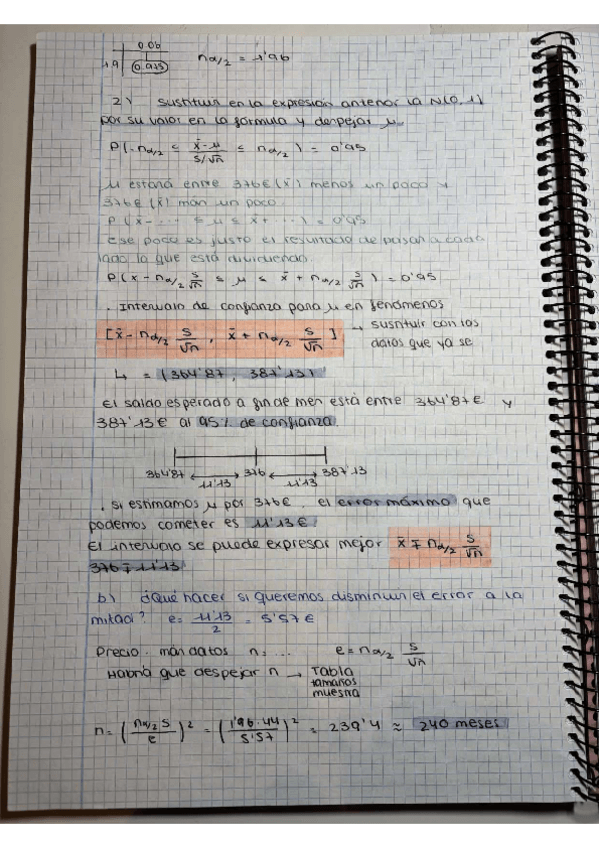 0.06
1.9 0.975 nα/2 = 1'96
2) Sustituir en la expresión anterior la N(0,1)
por su valor en la fórmula y despejar μ
P(-nα/2 ≤ x̄-μ / s/√n ≤ nα/2) = 0'95
μ estará entre 376€ (x̄) menos un poco y
376€ (x̄) más un poco.
P(x̄ - ... ≤ μ ≤ x̄ + ...) = 0'95
Ese poco es justo el resultado de pasar a cada
lado lo que está dividiendo.
P(x̄ - nα/2 s/√n ≤ μ ≤ x̄ + nα/2 s/√n) = 0'95
. Intervalo de confianza para μ en fenómenos
[x̄ - nα/2 s/√n , x̄ + nα/2 s/√n] → sustituir con los
datos que ya se
↳ = (364'87, 387'13)
El saldo esperado a fin de mes está entre 364'87€ y
387'13€ al 95% de confianza.
364'87 376 387'13
11'13 11'13
. Si estimamos μ por 376€ el error máximo que
podemos cometer es 11'13€
El intervalo se puede expresar mejor x̄ ∓ nα/2 s/√n
376 ∓ 11'13
b) ¿Qué hacer si queremos disminuir el error a la
mitad? e = 11'13/2 = 5'57€
Precio. más datos n = ... e = nα/2 s/√n
Habría que despejar n → Tabla
tamaños
muestra
n = (nα/2 s / e)² = (1'96·44 / 5'57)² = 239'4 ≈ 240 meses